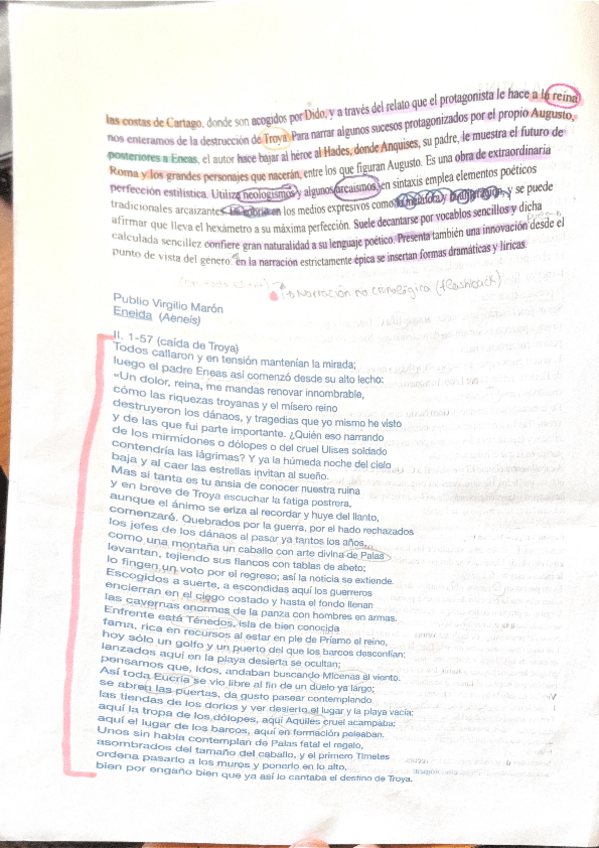 las costas de Cartago, donde son acogidos por Dido, y a través del relato que el protagonista le hace a la reina
nos enteramos de la destrucción de Troya. Para narrar algunos sucesos protagonizados por el propio Augusto,
posteriores a Eneas, el autor hace bajar al héroe al Hades, donde Anquises, su padre, le muestra el futuro de
Roma y los grandes personajes que nacerán, entre los que figuran Augusto. Es una obra de extraordinaria
perfección estilística. Utiliza neologismos y algunos arcaísmos, en sintaxis emplea elementos poéticos
tradicionales arcaizantes en los medios expresivos como y y se puede
afirmar que lleva el hexámetro a su máxima perfección. Suele decantarse por vocablos sencillos y dicha
calculada sencillez confiere gran naturalidad a su lenguaje poético. Presenta también una innovación desde el
punto de vista del género: en la narración estrictamente épica se insertan formas dramáticas y líricas.
Narración no cronológica (flashback)
Publio Virgilio Marón
Eneida (Aeneis)
II. 1-57 (caída de Troya)
Todos callaron y en tensión mantenían la mirada;
luego el padre Eneas así comenzó desde su alto lecho:
«Un dolor, reina, me mandas renovar innombrable,
cómo las riquezas troyanas y el mísero reino
destruyeron los dánaos, y tragedias que yo mismo he visto
y de las que fui parte importante. ¿Quién eso narrando
de los mirmídones o dólopes o del cruel Ulises soldado
contendría las lágrimas? Y ya la húmeda noche del cielo
baja y al caer las estrellas invitan al sueño.
Mas si tanta es tu ansia de conocer nuestra ruina
y en breve de Troya escuchar la fatiga postrera,
aunque el ánimo se eriza al recordar y huye del llanto,
comenzaré. Quebrados por la guerra, por el hado rechazados
los jefes de los dánaos al pasar ya tantos los años,
como una montaña un caballo con arte divina de Palas
levantan, tejiendo sus flancos con tablas de abeto;
lo fingen un voto por el regreso; así la noticia se extiende.
Escogidos a suerte, a escondidas aquí los guerreros
encierran en el ciego costado y hasta el fondo llenan
las cavernas enormes de la panza con hombres en armas.
Enfrente está Ténedos, isla de bien conocida
fama, rica en recursos al estar en pie de Príamo el reino,
hoy sólo un golfo y un puerto del que los barcos desconfían:
lanzados aquí en la playa desierta se ocultan;
pensamos que, idos, andaban buscando Micenas al viento.
Así toda Eucria se vio libre al fin de un duelo ya largo;
se abren las puertas, da gusto pasear contemplando
las tiendas de los dorios y ver desierto el lugar y la playa vacía:
aquí la tropa de los dólopes, aquí Aquiles cruel acampaba;
aquí el lugar de los barcos, aquí en formación peleaban.
Unos sin habla contemplan de Palas fatal el regalo,
asombrados del tamaño del caballo, y el primero Timetes
ordena pasarlo a los muros y ponerlo en lo alto,
bien por engaño bien que ya así lo cantaba el destino de Troya.